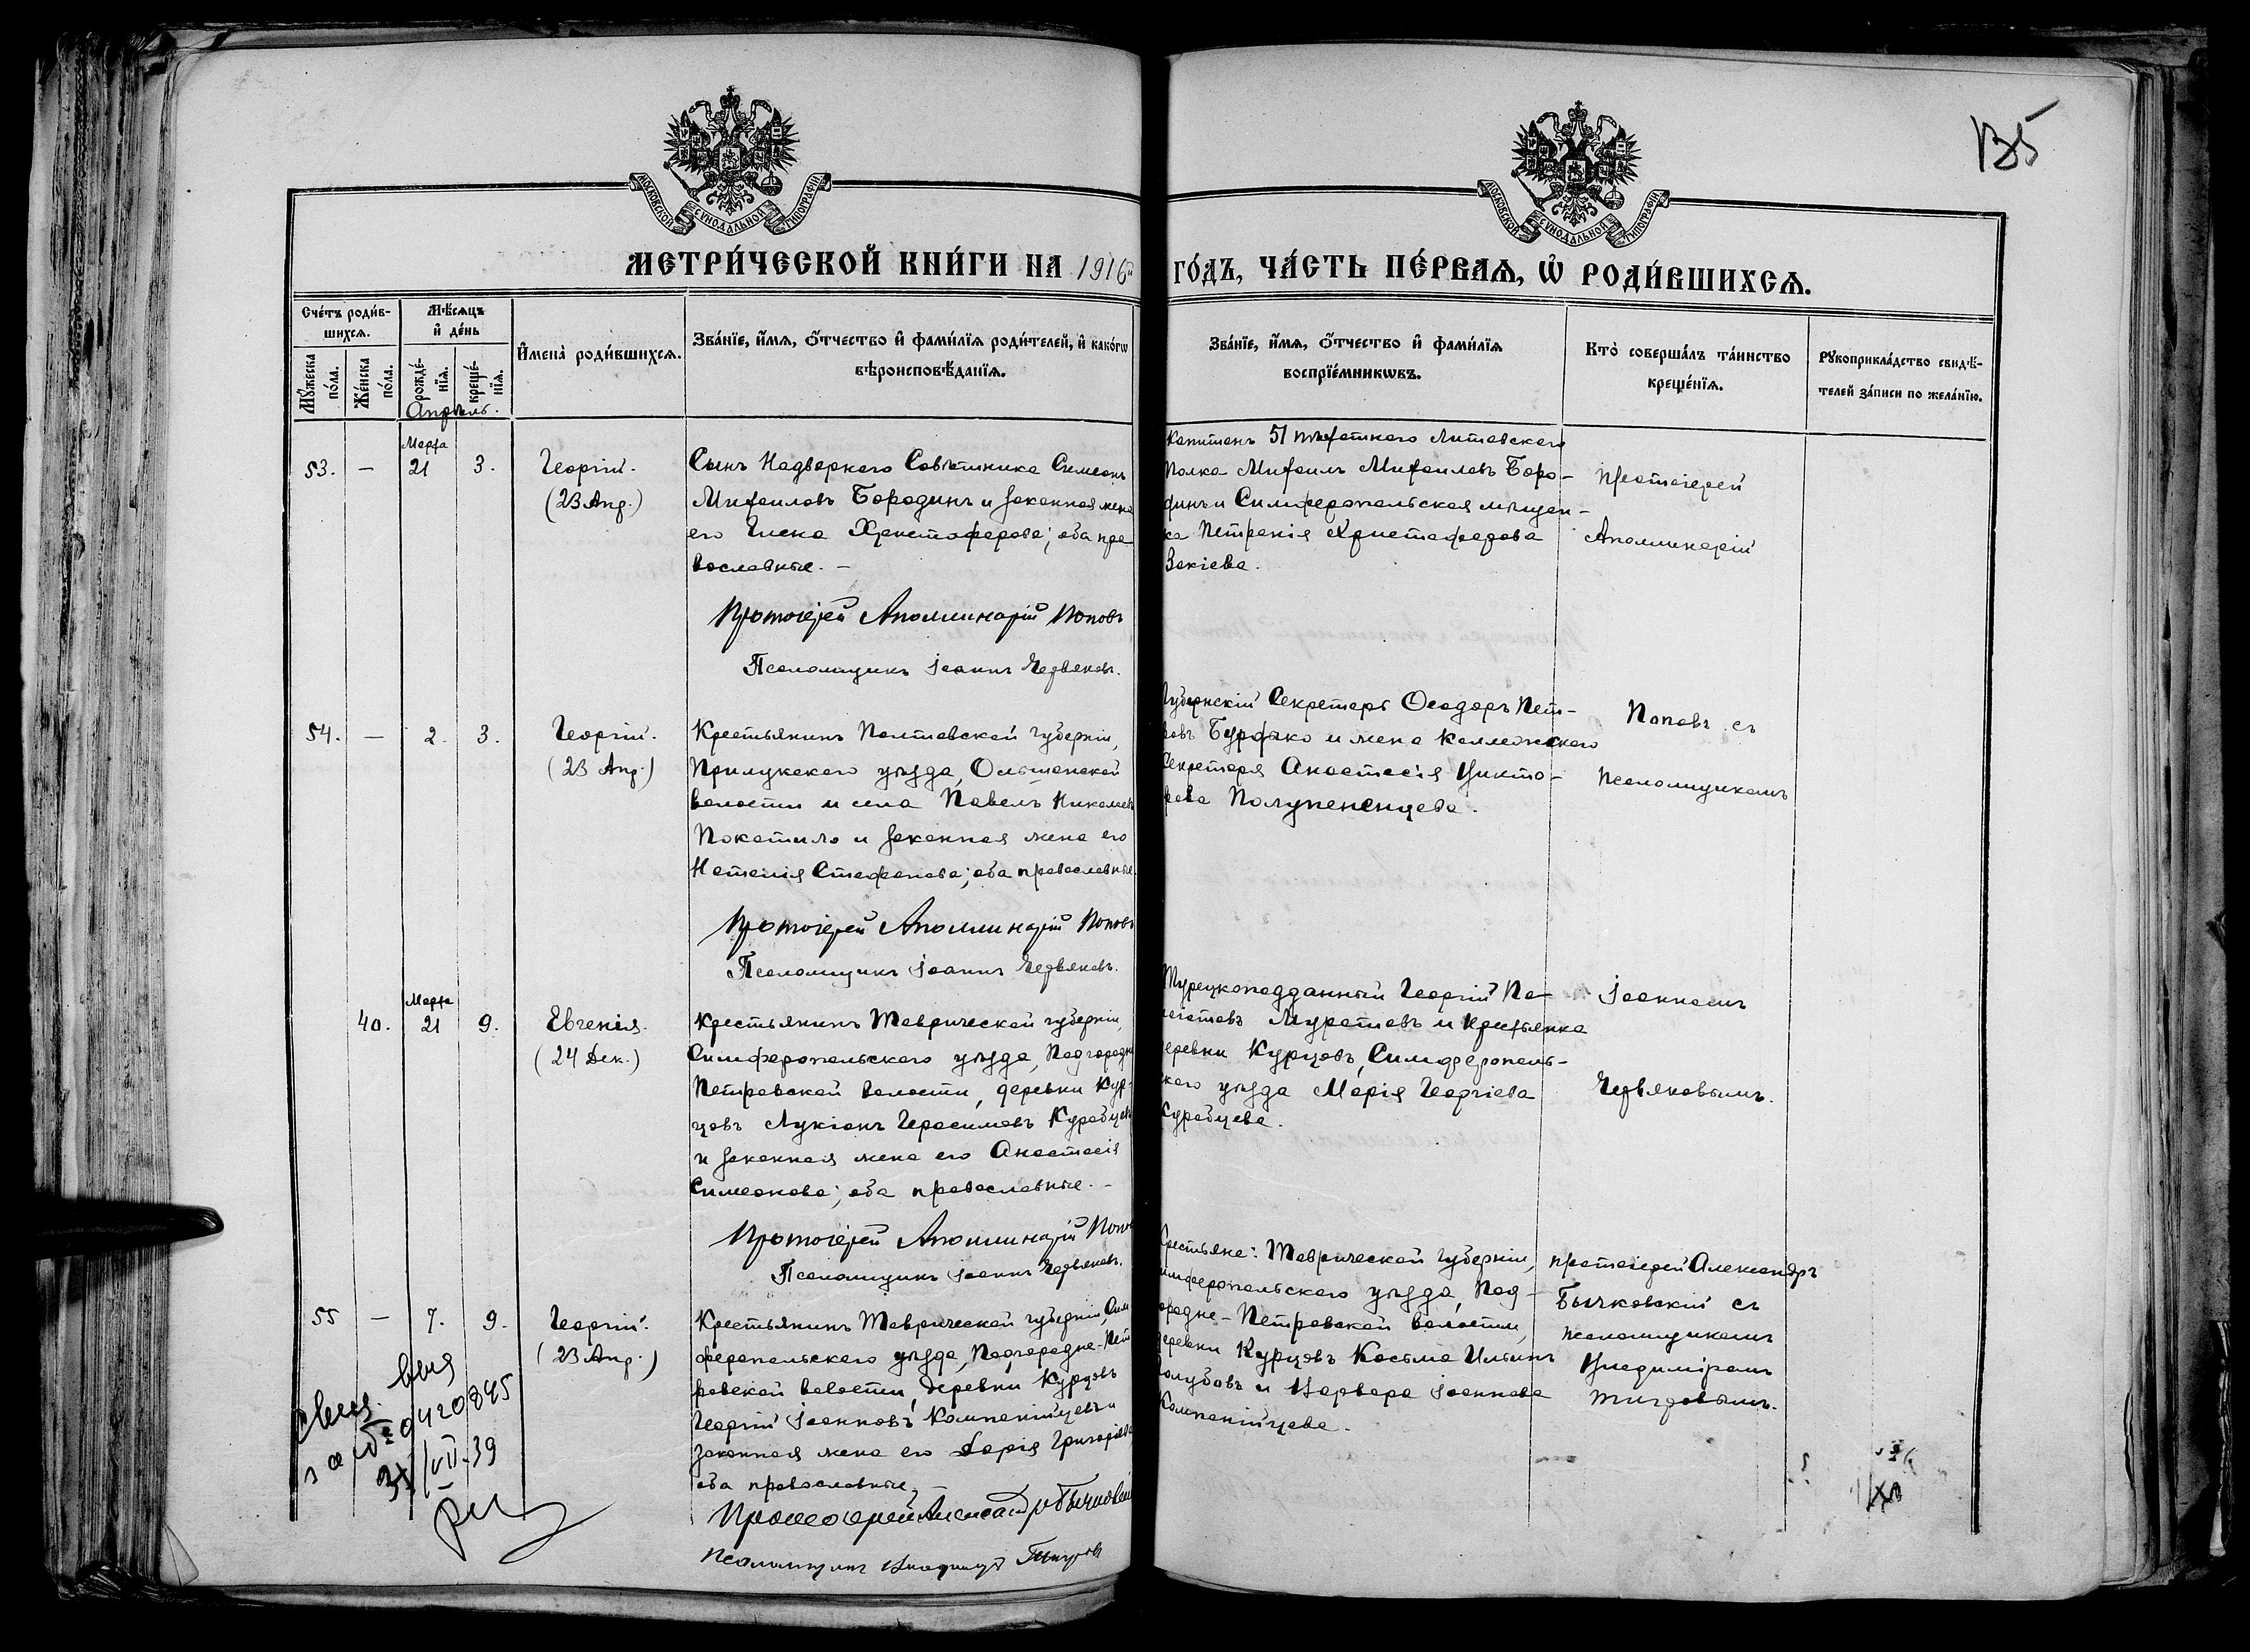 135
МОСКОВСКОЙ СѴНОДАЛЬНОЙ ТИПОГРАФІИ
МОСКОВСКОЙ СѴНОДАЛЬНОЙ ТИПОГРАФІИ
МЕТРИ́ЧЕСКОЙ КНИ́ГИ НА 1916й
ГО́ДЪ, ЧА́СТЬ ПЕ́РВАѦ, Ѡ҆ РОДИ́ВШИХСѦ.
Сче́тъ роди́в-
шихсѧ.
Мꙋ́жеска по́ла.
Же́нска по́ла.
Мѣ́сѧцъ
и҆ де́нь
рожде́-нїѧ.
креще́-нїѧ.
Апрѣль.
И҆мена̀ роди́вшихсѧ.
Зва́нїе, и҆́мѧ, ѻ҆́тчество и҆ фами́лїѧ роди́телей, и҆ како́гѡ
вѣроисповѣ́данїѧ.
Зва́нїе, и҆́мѧ, ѻ҆́тчество и҆ фами́лїѧ
воспрїе́мникѡвъ.
Кто̀ соверша́лъ та́инство
креще́нїѧ.
Рꙋкоприкла́дство свидѣ́-
телей за́писи по жела́нїю.
53. — Марта 21 3.
Георгій.
(23 Апр.)
Сынъ Надворнаго Совѣтника Симеонъ
Михаиловъ Бородинъ и законная жена
его Елена Христофорова; оба пра
вославные. —
Протоіерей Аполлинарій Поповъ
Псаломщикъ Іоаннъ Червяковъ.
Капитанъ 51 пѣхотнаго Литовскаго
Полка Михаилъ Михаиловъ Боро-
динъ и Симферопольская мѣщан-
ка Петронія Христофорова
Закіева.
Протоіерей
Аполлинарій
54. — 2. 3.
Георгій.
(23 Апр.)
Крестьянинъ Полтавской губерніи,
Прилукскаго уѣзда, Ольшанской
волости и села Павелъ Николаевъ
Покотило и законная жена его
Наталія Стефанова; оба православные.
Протоіерей Аполлинарій Поповъ
Псаломщикъ Іоаннъ Червяковъ.
Губернскій Секретарь Ѳеодоръ Пет-
ровъ и жена Коллежскаго
Секретаря Анастасія Викто-
рова
Поповъ съ
Псаломщикомъ
40. Марта 21 9.
Евгенія.
(24 Дек.)
Крестьянинъ Таврической губерніи,
Симферопольскаго уѣзда, Подгородне
Петровской волости, деревни Кур-
цовъ Лукіанъ Герасимовъ Курабцевъ
и законная жена его Анастасія
Симеонова; оба православные. —
Протоіерей Аполлинарій Попов
Псаломщикъ Іоаннъ Червяковъ.
Турецкоподданный Георгій Па-
Муратовъ и Крестьянка
деревни Курцовъ, Симферополь-
скаго уѣзда Марія Георгіева
Курабцева.
Іоанномъ
Червяковымъ.
55 — 7. 9.
Георгій.
(23 Апр.)
Крестьянинъ Таврической губерніи, Сим
феропольскаго уѣзда, Подгородне-Пет
ровской волости, деревни Курцовъ
Георгій Іоанновъ Компанійцевъ и
законная жена его Дарія Григоріева
оба православные. —
Протоіерей Александръ Бычковскій
Псаломщикъ Владиміръ
Крестьяне: Таврической губерніи,
Симферопольскаго уѣзда, Под-
городне-Петровской волости,
деревни Курцовъ Косьма Ильинъ
Голубовъ и Варвара Іоаннова
Компанійцева.
протоіерей Александръ
Бычковскій съ
псаломщикомъ
Владиміромъ
за № 0420845
31/VII-39